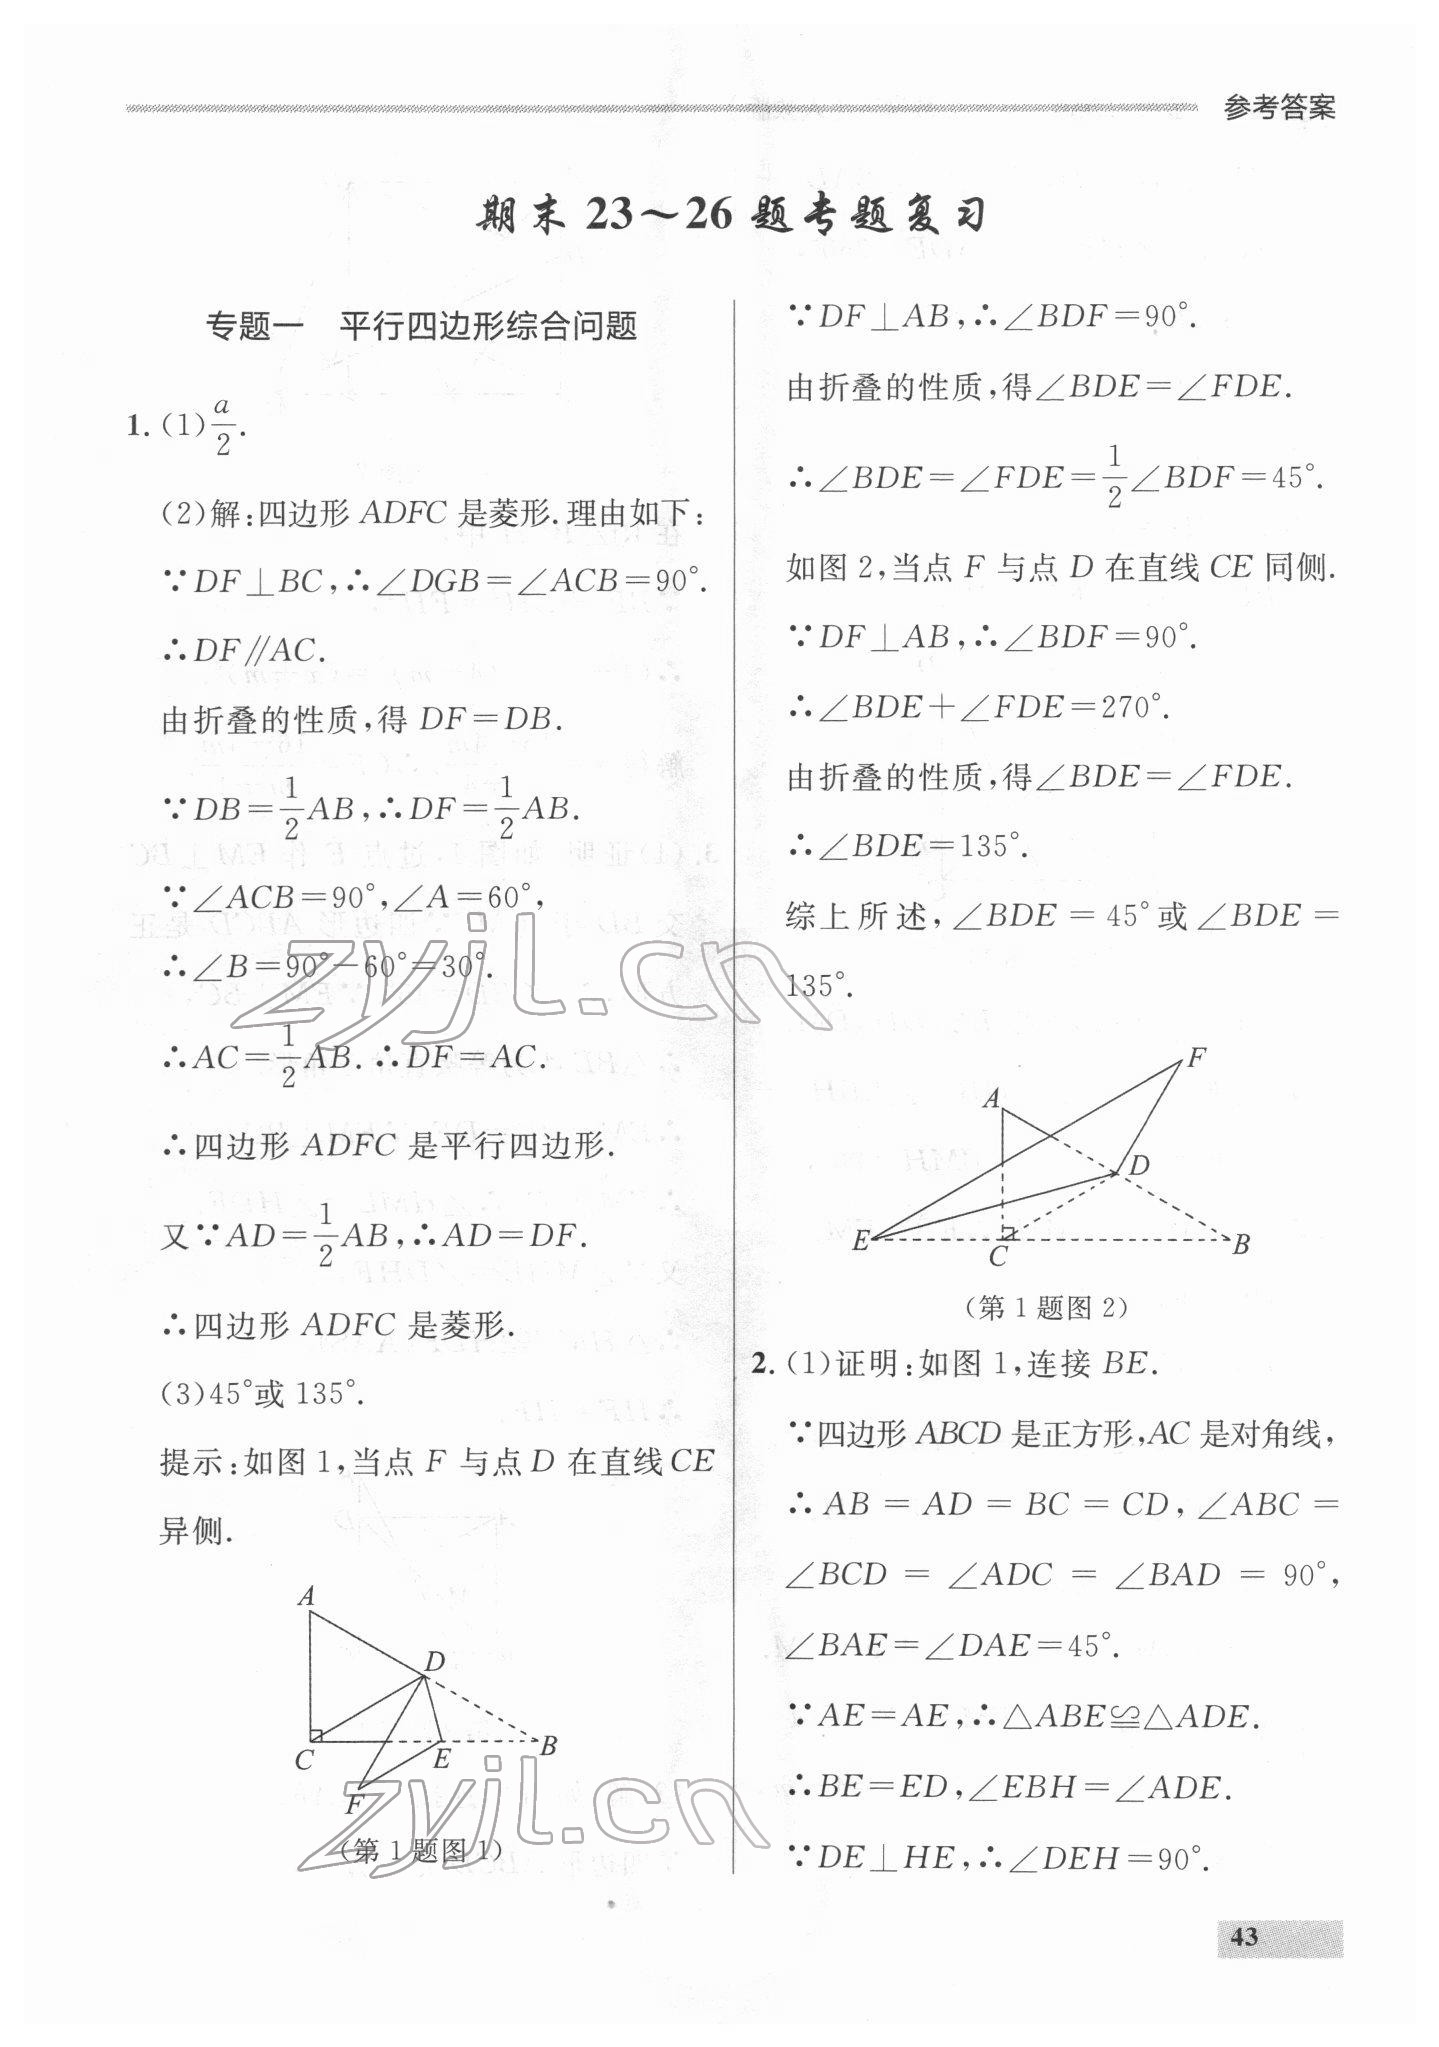 参考答案
期末 23～26 题专题复习
专题一　平行四边形综合问题
1. (1) a/2.
(2)解:四边形 ADFC 是菱形.理由如下:
∵DF⊥BC,∴∠DGB=∠ACB=90°.
∴DF∥AC.
由折叠的性质,得 DF=DB.
∵DB=1/2AB,∴DF=1/2AB.
∵∠ACB=90°,∠A=60°,
∴∠B=90°-60°=30°.
∴AC=1/2AB.∴DF=AC.
∴四边形 ADFC 是平行四边形.
又∵AD=1/2AB,∴AD=DF.
∴四边形 ADFC 是菱形.
(3)45°或 135°.
提示:如图 1,当点 F 与点 D 在直线 CE
异侧.
A
D
C
E
B
F
(第 1 题图 1)
∵DF⊥AB,∴∠BDF=90°.
由折叠的性质,得∠BDE=∠FDE.
∴∠BDE=∠FDE=1/2∠BDF=45°.
如图 2,当点 F 与点 D 在直线 CE 同侧.
∵DF⊥AB,∴∠BDF=90°.
∴∠BDE+∠FDE=270°.
由折叠的性质,得∠BDE=∠FDE.
∴∠BDE=135°.
综上所述,∠BDE=45°或∠BDE=
135°.
F
A
D
E
C
B
(第 1 题图 2)
2. (1)证明:如图 1,连接 BE.
∵四边形 ABCD 是正方形,AC 是对角线,
∴AB=AD=BC=CD,∠ABC=
∠BCD=∠ADC=∠BAD=90°,
∠BAE=∠DAE=45°.
∵AE=AE,∴△ABE≌△ADE.
∴BE=ED,∠EBH=∠ADE.
∵DE⊥HE,∴∠DEH=90°.
43
zyjl.cn
zyjl.cn